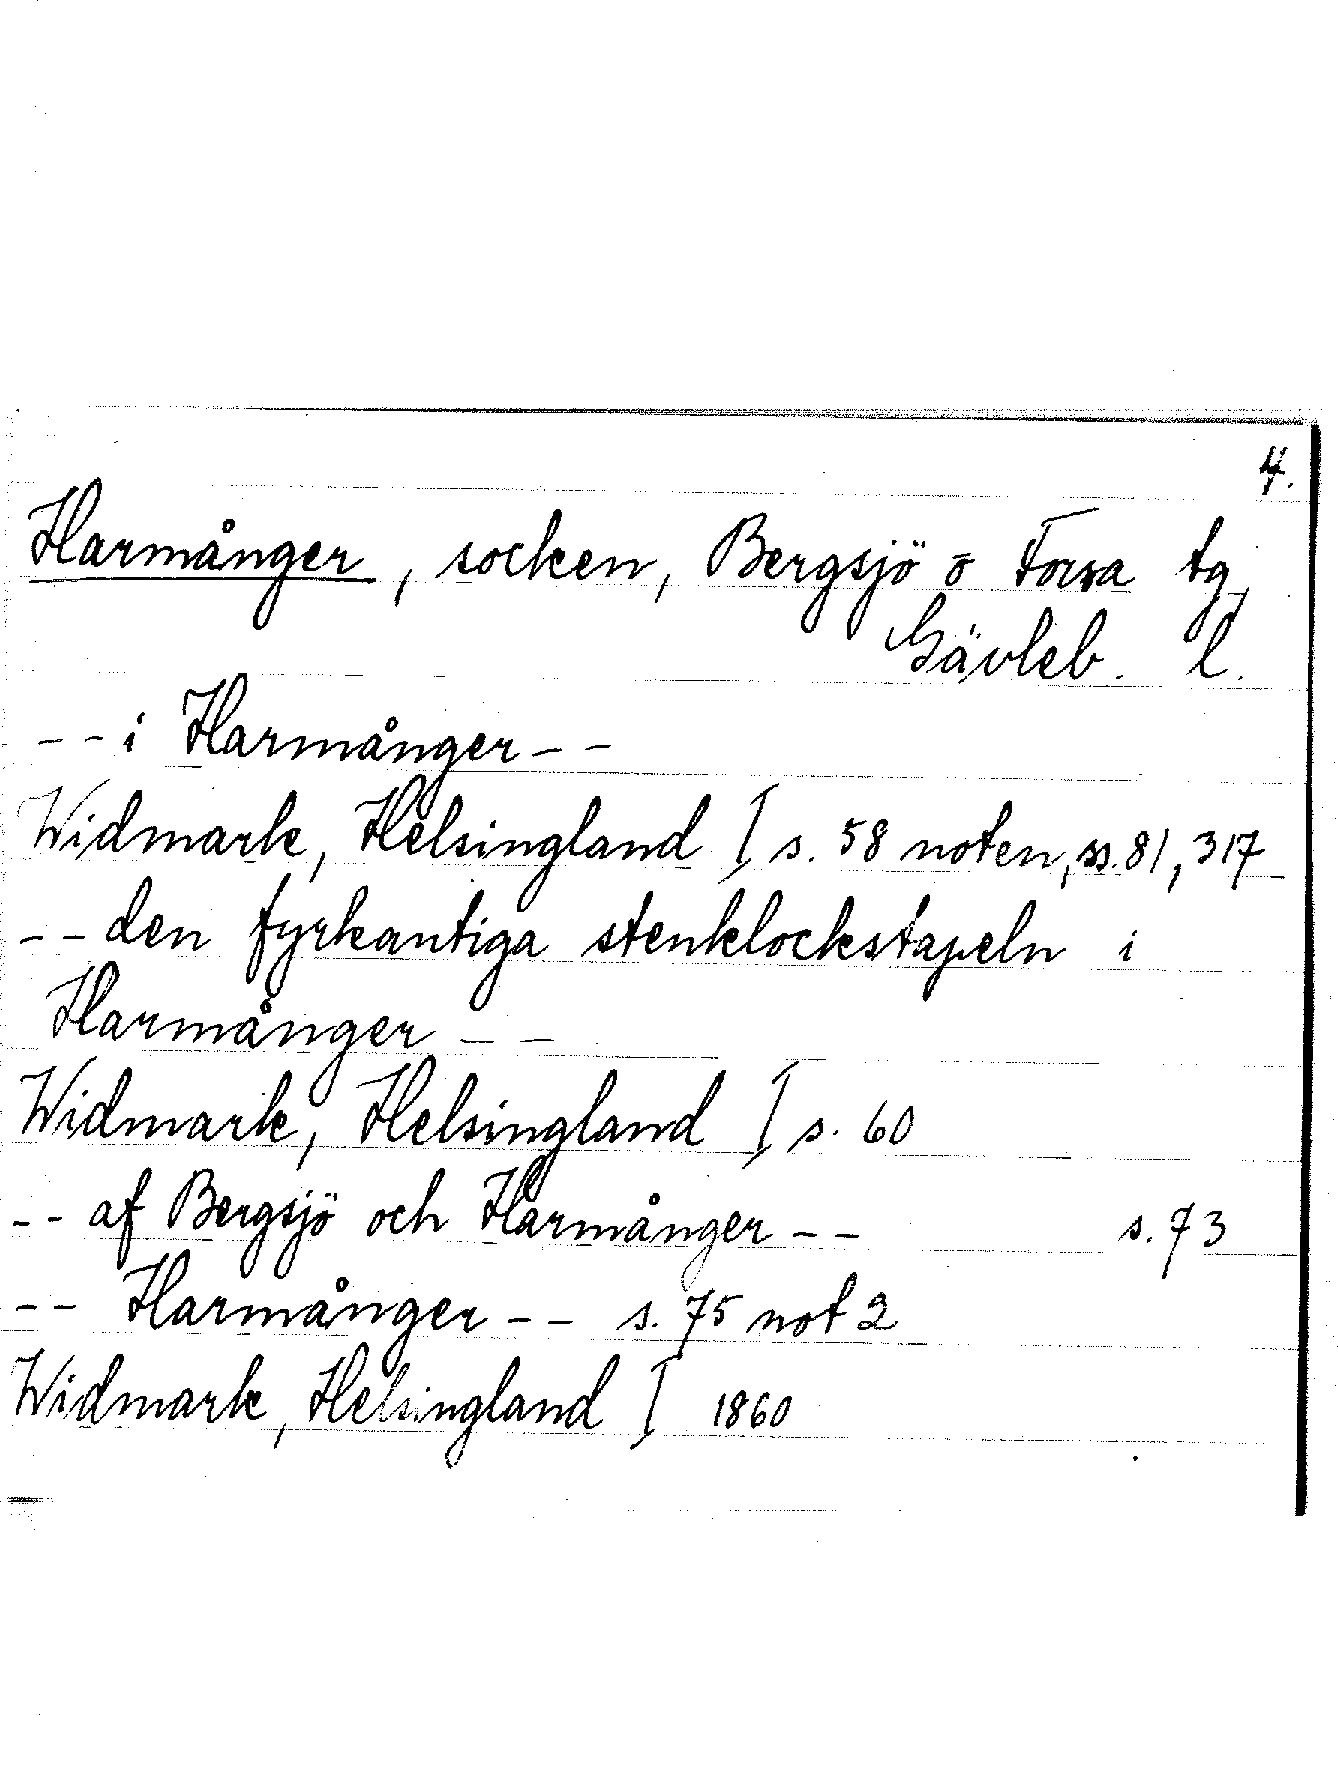 4.
Harmånger, socken, Bergsjö o Forsa tg
Gävleb. l.
-- i Harmånger --
Widmark, Helsingland I s. 58 noten, ss. 81, 317
-- den fyrkantiga stenklockstapeln i
Harmånger --
Widmark, Helsingland I s. 60
-- af Bergsjö och Harmånger -- s. 73
-- Harmånger -- s. 75 not 2
Widmark, Helsingland I 1860